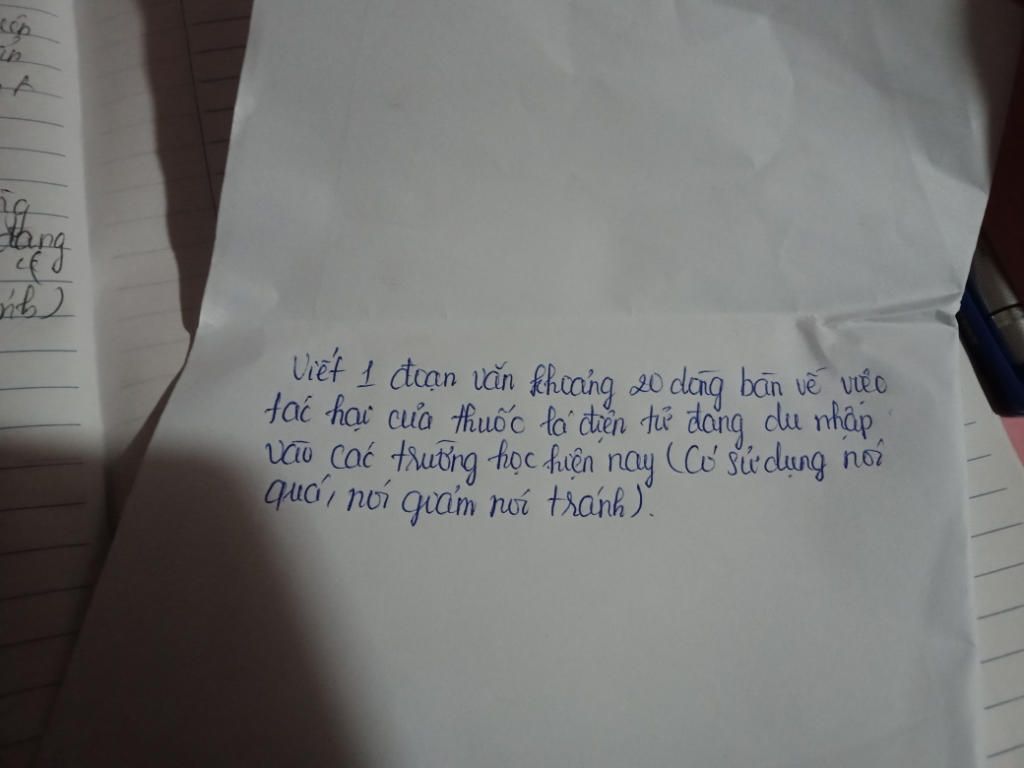 ng
đang
Viết 1 đoạn văn khoảng 20 dòng bàn về việc
tác hại của thuốc lá điện tử đang du nhập
vào các trường học hiện nay (Có sử dụng nói
quá, nói giảm nói tránh).